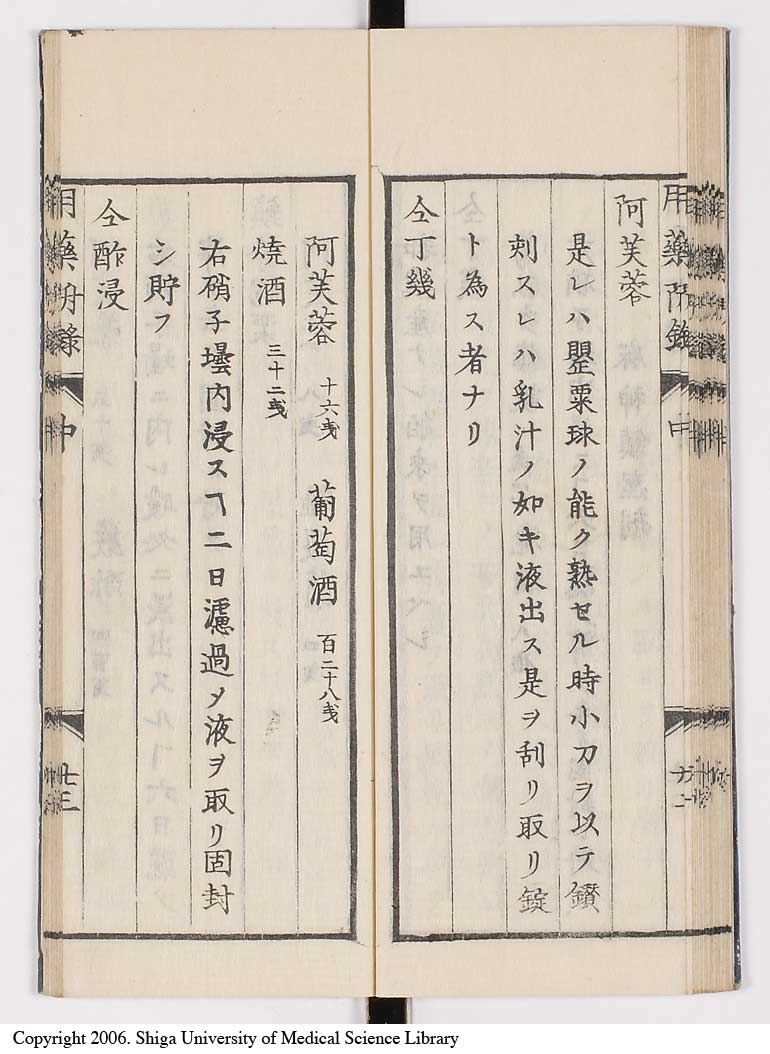 阿芙蓉
是レハ罌粟球ノ能ク熟セル時小刀ヲ以テ鑚
刺スレハ乳汁ノ如キ液出ス是ヲ刮リ取リ錠
ト為ス者ナリ
仝丁幾
阿芙蓉 十六戔 葡萄酒 百二十八戔
焼酒 三十二戔
右硝子壜内浸スヿ二日濾過メ液ヲ取リ固封
シ貯フ
仝酢浸
中
廿三
Copyright 2006. Shiga University of Medical Science Library